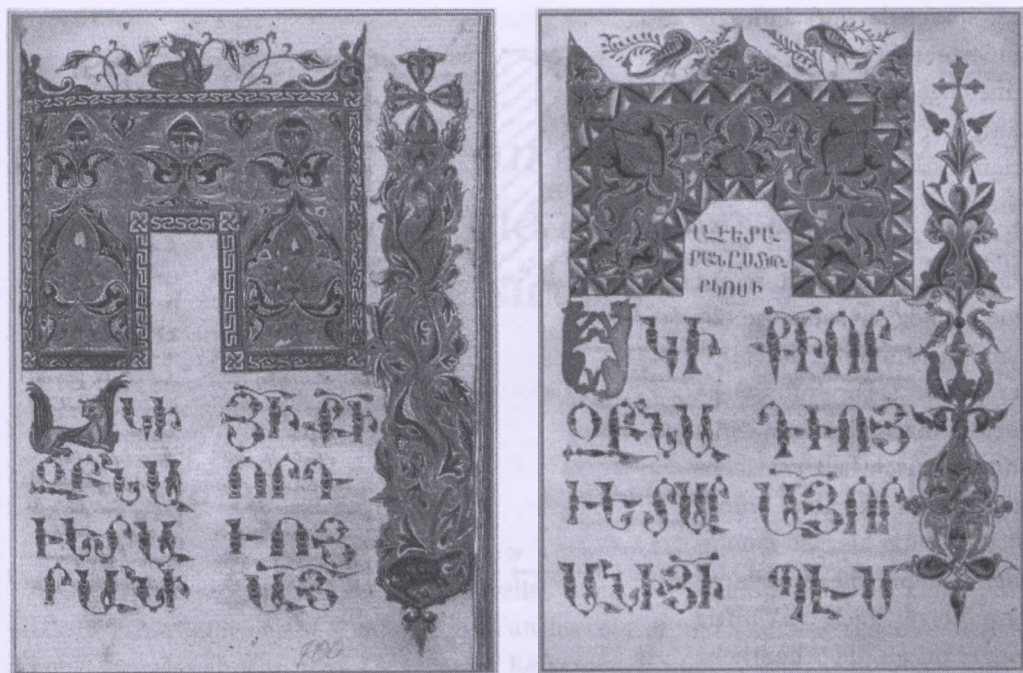 ՍԿԻ ՅԻՔԻ
ԶԲՆԱ ՈՐԴ
ՒԵՏԱ ՒՈՅ
ՐԱՆԻ ԱՅ
780
ԱՒԵՏԱ-
ՐԱՆԸՍՏՄԱ-
ՐԿՈՍԻ
ՍԿԻ ՔԻՈՐ
ԶԲՆԱ ԴՒՈՅ
ՒԵՏԱՐ ԱՅՈՐ
ԱՆԻՅԻ ՊԷՍ